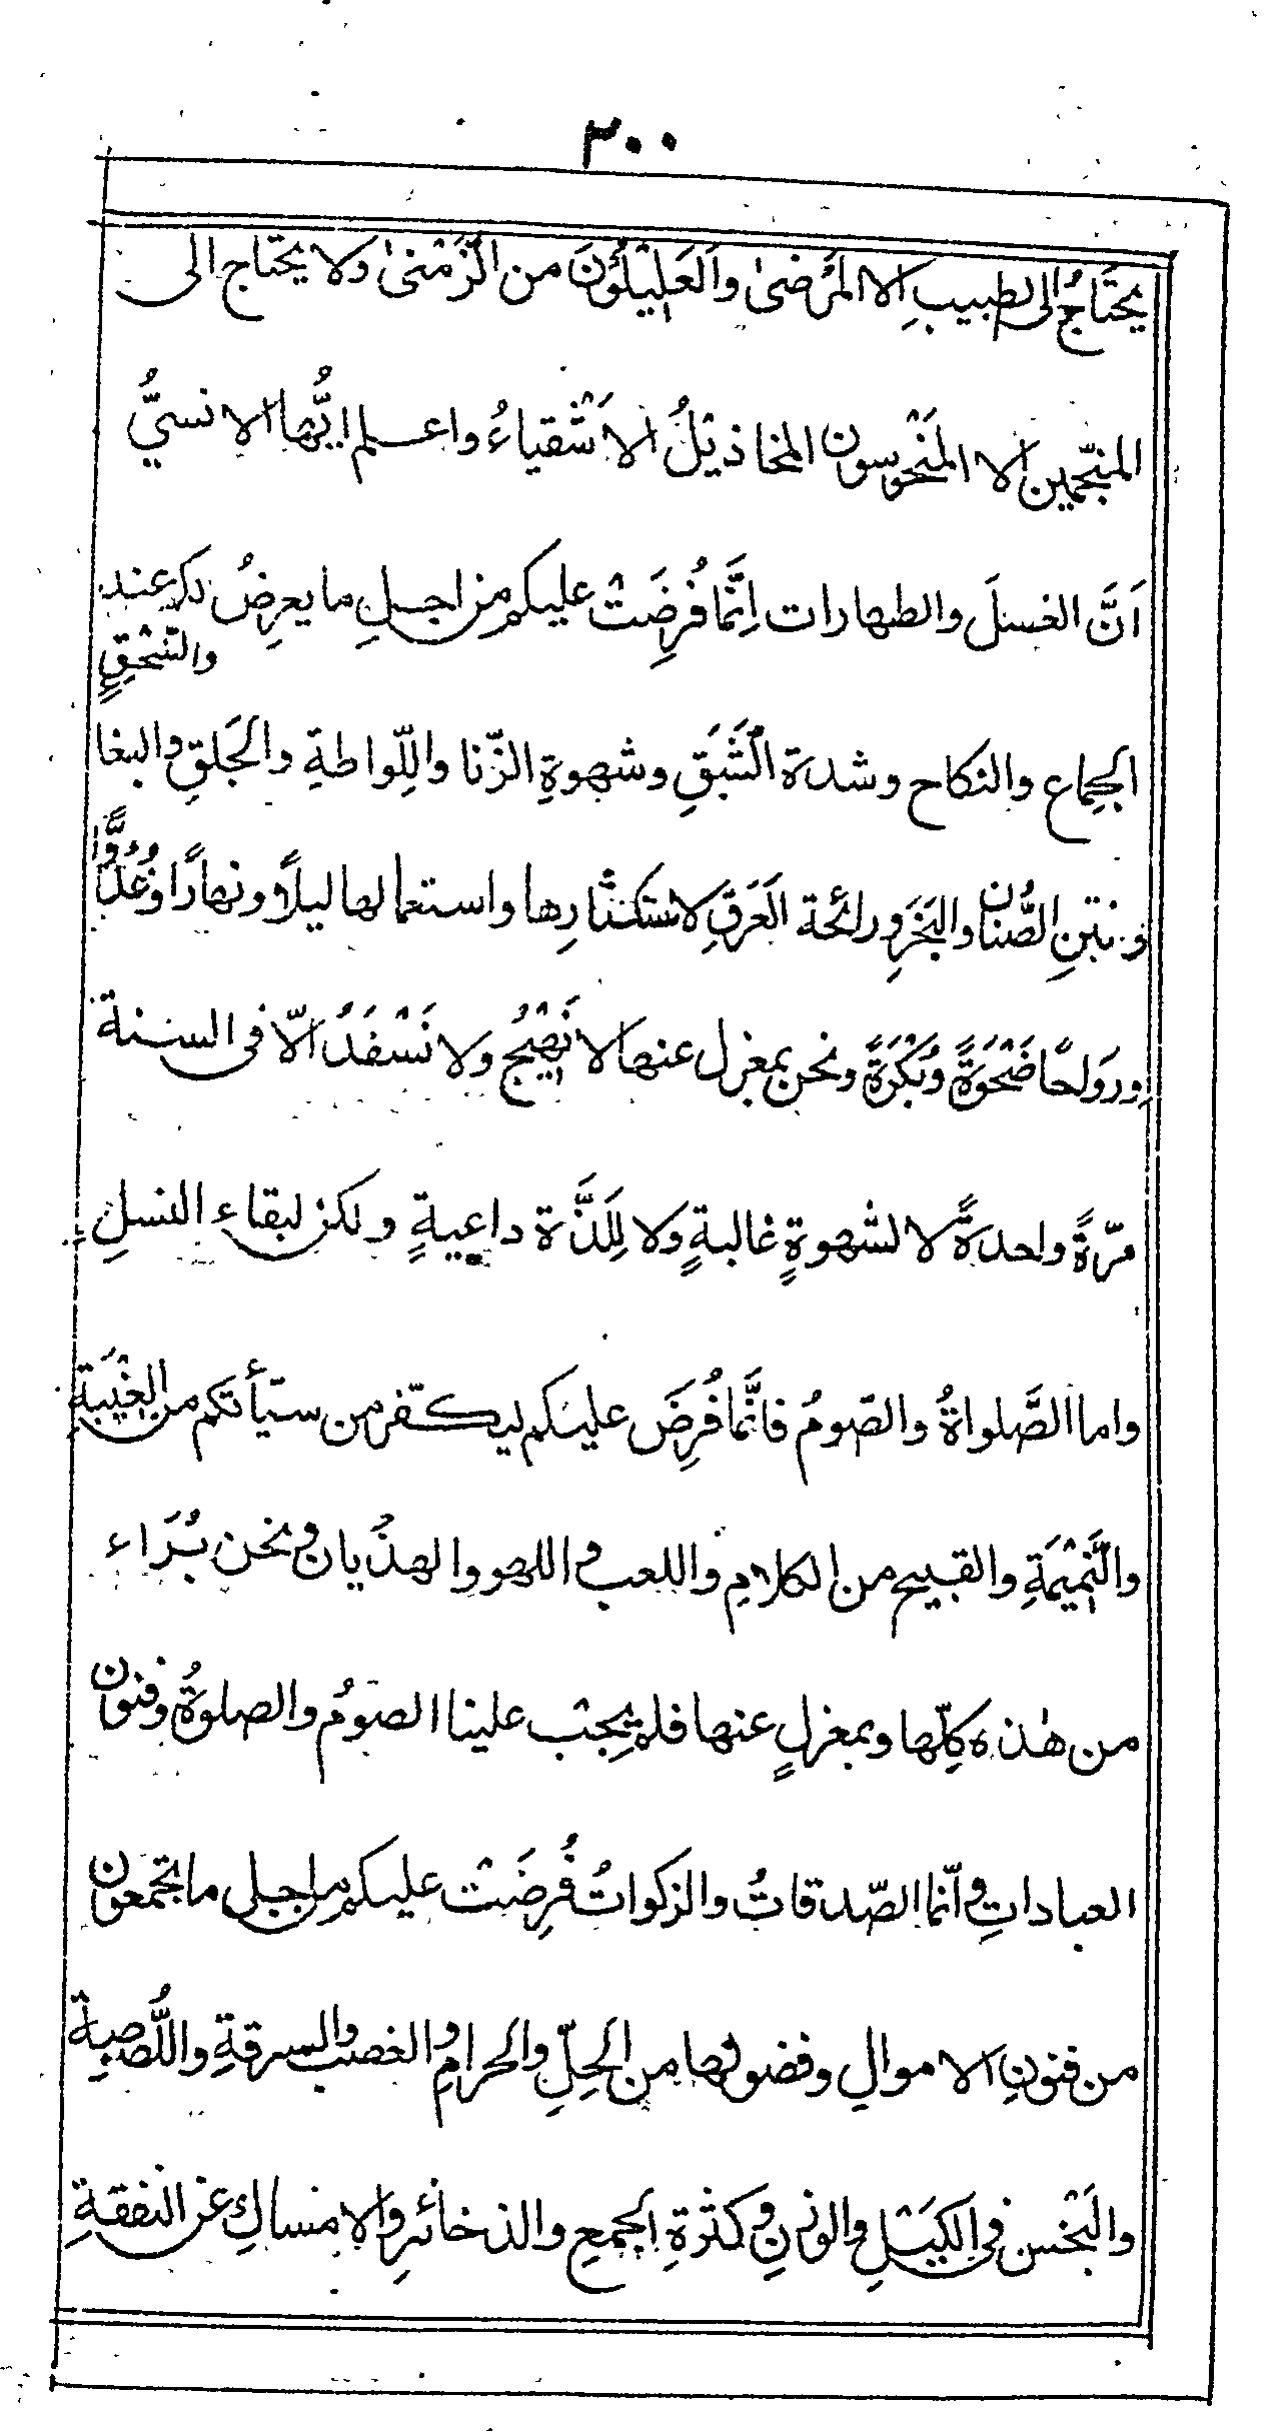 ٣٠٠
يحتَاجُ الى الطبيبِ الا المَرْضىٰ والعَلِيْلُوْنَ من الزَّمْنىٰ ولا يحتاج الى
المنجّمين الا المَنْحُوسون المخاذيْلُ الاَشْقياءُ واعلم ايُّها الانسيُّ
اَنَّ الغسلَ والطهارات اِنَّمَا فُرِضَتْ عليكم من اجلِ ما يعرِضُ لكم عند
والسَّحْقِ
الجِماع والنكاح وشدة الشَّبَقِ وشهوةِ الزّنا واللِّواطةِ والجَلقِ والبغا
ونتنِ الصُّنان والبَخَرِ ورائحة العَرَقِ لاستكثارِها واستعمالها ليلاً ونهارًا وغُدُوًّا
ورَواحًا ضَحْوَةً وبُكْرَةً ونحن بمعزل عنها لا نَهِيْجُ ولا نَسْفَدُ الّا فى السنة
مرّةً واحدةً لا لشهوةٍ غالبةٍ ولا لِلَذَّة داعيةٍ ولكن لبقاء النسلِ
واما الصَّلواةُ والصّومُ فانَّما فُرِضَ عليكم ليكفّر من سيّأتكم من الغِيْبَةِ
والنَّمِيْمَةِ والقبيح من الكلامِ واللعب واللهو والهذْيان ونحن بُرَاء
من هٰذه كلِّها وبمعزلٍ عنها فلم يجِبْ علينا الصومُ والصلوةُ وفنون
العباداتِ وانّما الصّدقاتُ والزكواتُ فُرِضَتْ عليكم من اجل ما تجمعون
من فنونِ الاموالِ وفضولها من الحِلِّ والحرامِ والغصب والسرقةِ واللُّصوصيةِ
والبَخْس فى الكَيْلِ والوزنِ وكثرةِ الجمعِ والذخائرِ والامساكِ عن النفقةِ